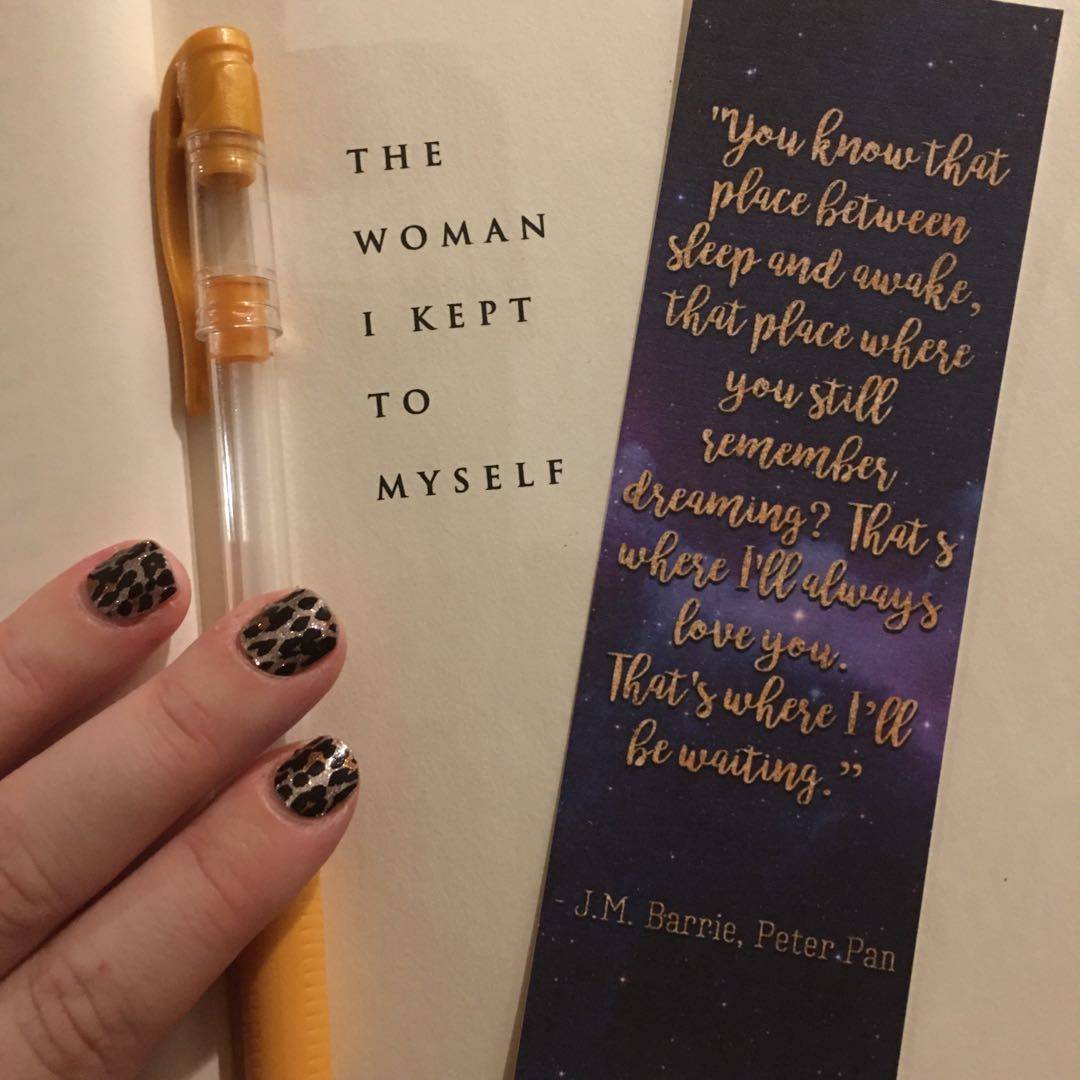 THE
WOMAN
I KEPT
TO
MYSELF
"You know that
place between
sleep and awake,
that place where
you still
remember
dreaming? That s
where I'll always
love you.
That's where I’ll
be waiting.”
- J.M. Barrie, Peter Pan